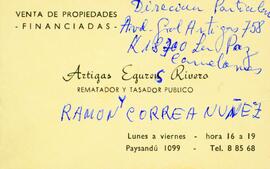 VENTA DE PROPIEDADES
- FINANCIADAS -
Direccion Particular
Avd. Gral Artigas 758
K 18,300 La Paz
Canelones
Artigas Egures Rivero
REMATADOR Y TASADOR PUBLICO
Y
RAMON CORREA NUÑEZ
Lunes a viernes - hora 16 a 19
Paysandú 1099 - Tel. 8 85 68